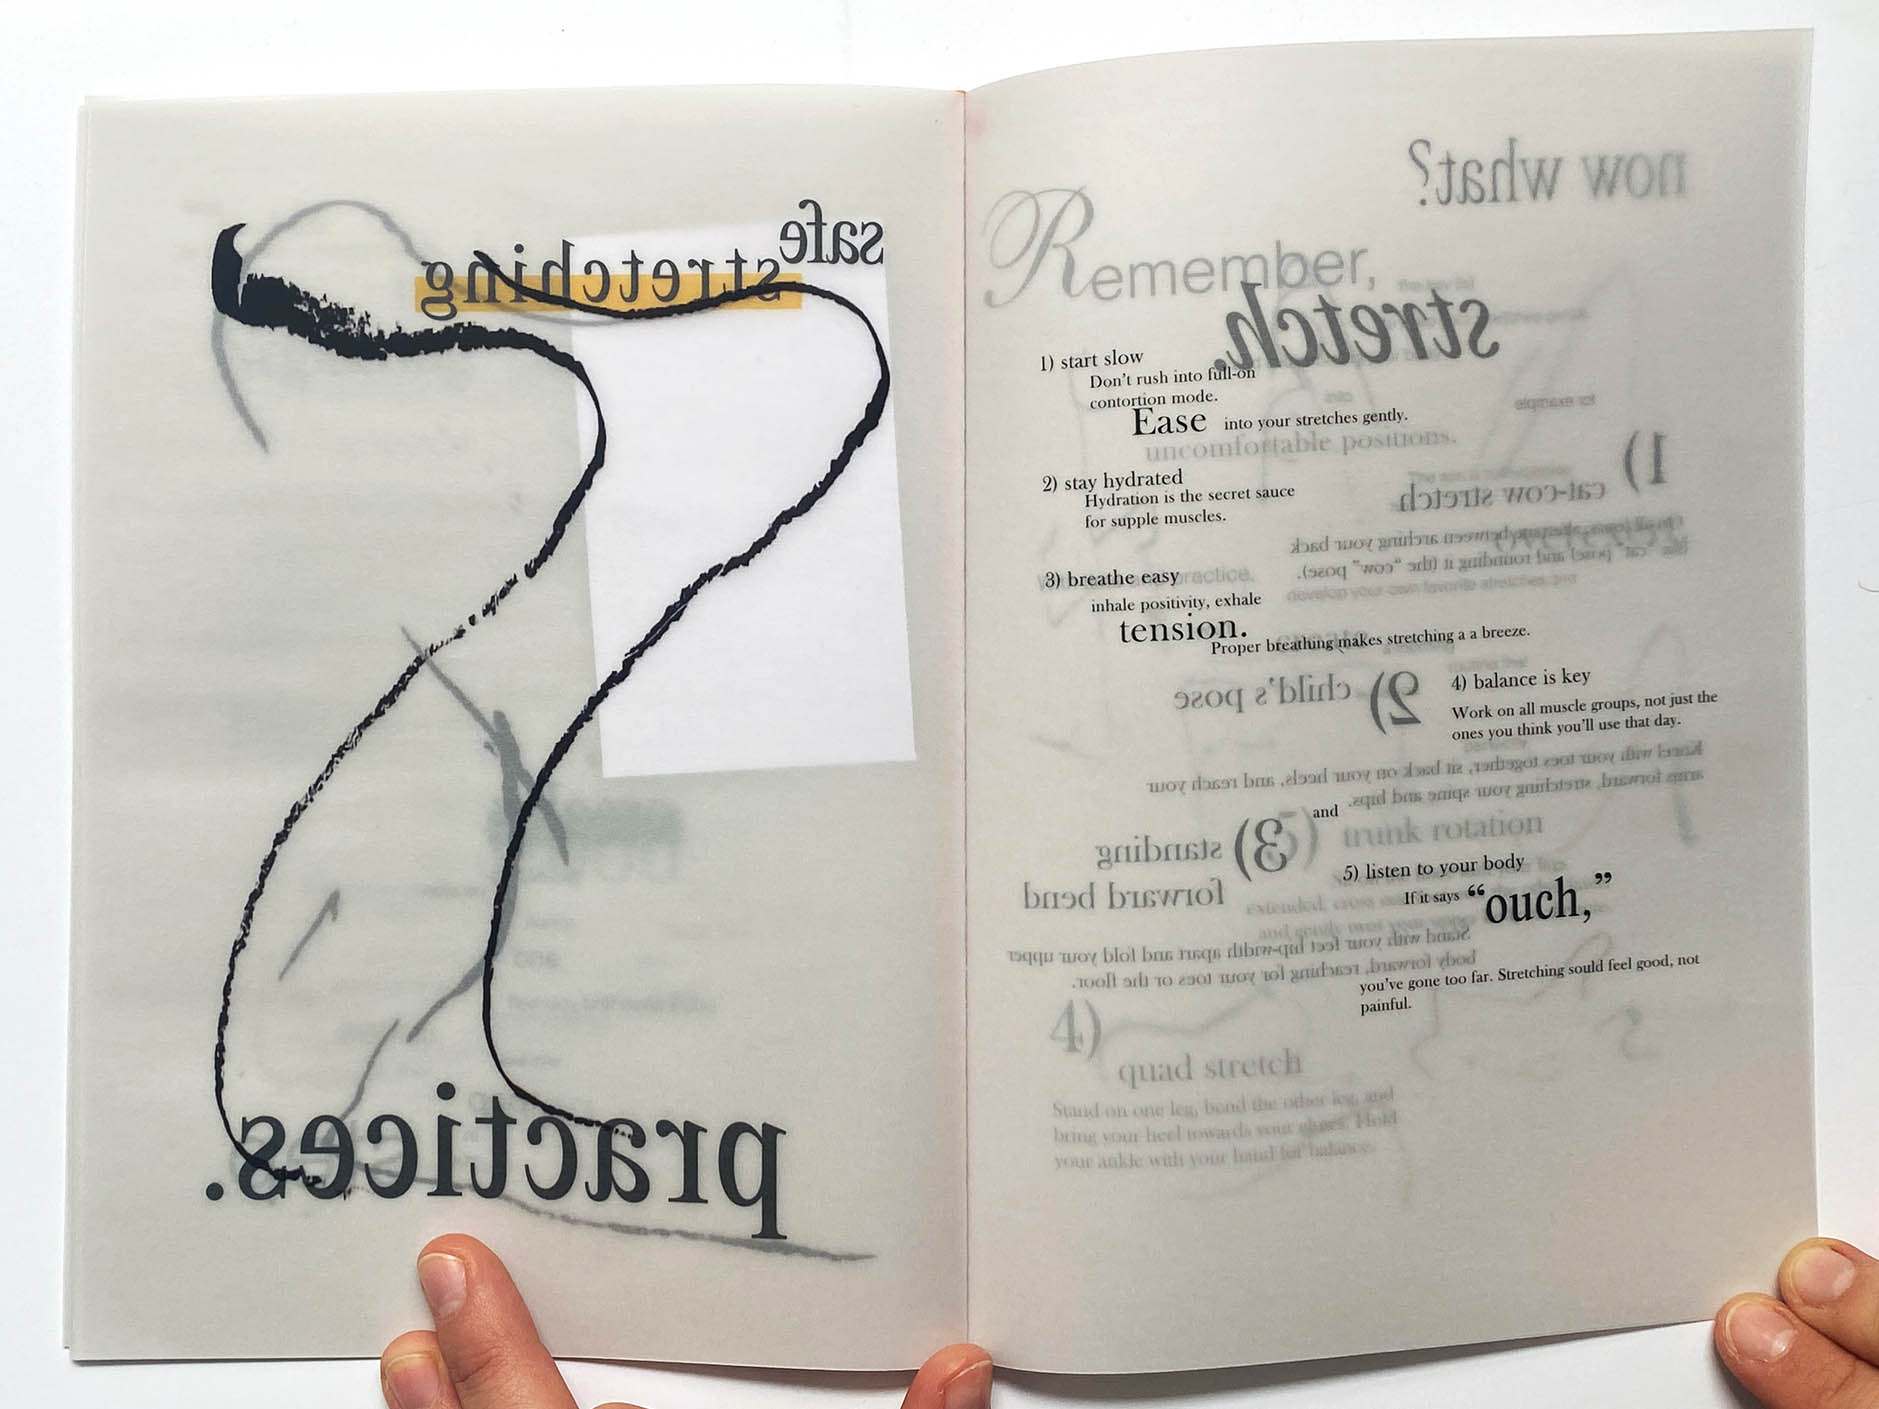 safe
stretching
practices.
now what?
Remember,
stretch.
1) start slow
Don't rush into full-on
contortion mode.
Ease into your stretches gently.
for example
uncomfortable positions.
1)
cat-cow stretch
2) stay hydrated
Hydration is the secret sauce
for supple muscles.
On all fours, alternate between arching your back
(the "cat" pose) and rounding it (the "cow" pose).
3) breathe easy
practice.
develop your own favorite stretches, and
inhale positivity, exhale
tension.
Proper breathing makes stretching a a breeze.
2) child's pose
4) balance is key
Work on all muscle groups, not just the
ones you think you'll use that day.
Kneel with your toes together, sit back on your heels, and reach your
arms forward, stretching your spine and hips.
and
5) trunk rotation
3) standing
forward bend
5) listen to your body
If it says "ouch,"
Stand with your feet hip-width apart and fold your upper
body forward, reaching for your toes or the floor.
you've gone too far. Stretching sould feel good, not
painful.
4)
quad stretch
Stand on one leg, bend the other leg, and
bring your heel towards your glutes. Hold
your ankle with your hand for balance.